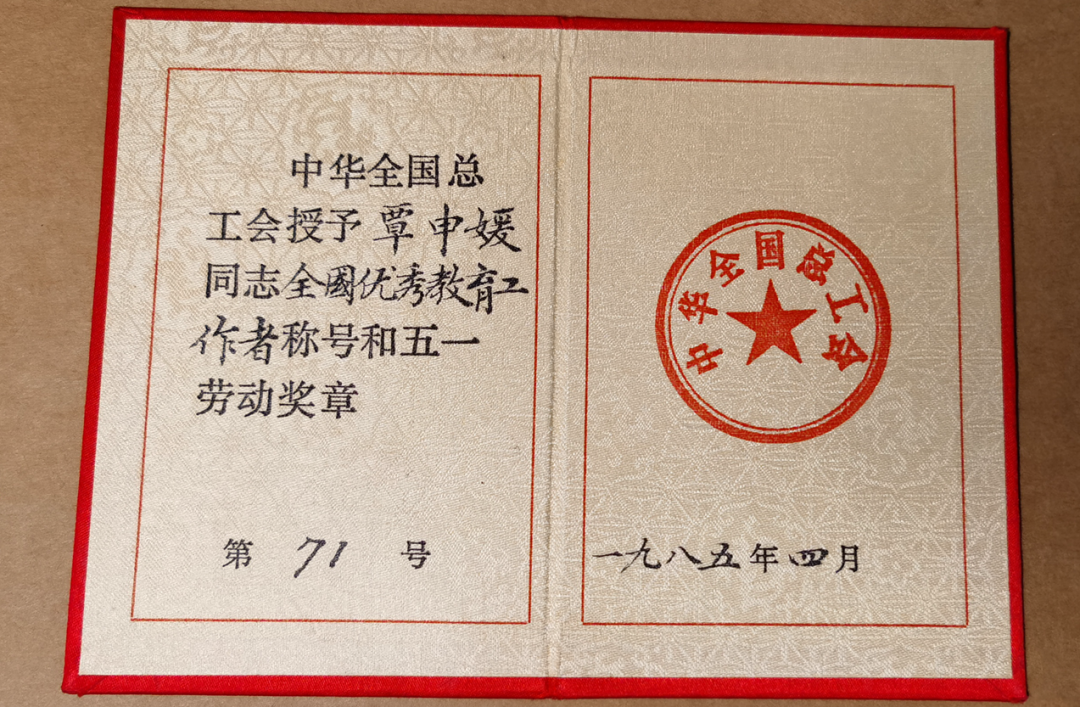 中华全国总
工会授予覃申媛
同志全國优秀教育工
作者称号和五一
劳动奖章
第 71 号
中华全国总工会
一九八五年四月